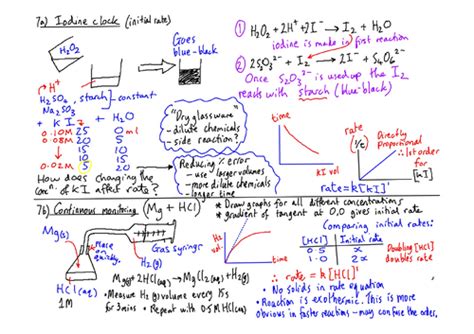 7a) Iodine clock (initial rate)
H₂O₂
Goes
blue-black
H⁺
H₂SO₄, starch - constant
Na₂SO₃
+ KI + H₂O
0.10M 25 0 ml
20 5
15 10
10 15
0.02M 5 20
How does changing the
concⁿ of KI affect rate?
"Dry glassware"
- dilute chemicals
- side reaction?
Reducing % error
- use larger volumes
- more dilute chemicals
- longer time
① H₂O₂ + 2H⁺ + 2I⁻ → I₂ + H₂O
iodine is made in first reaction
② 2S₂O₃²⁻ + I₂ → 2I⁻ + S₄O₆²⁻
Once S₂O₃²⁻ is used up the I₂
reacts with starch (blue-black)
time
KI vol
rate
(1/t)
Directly
Proportional
∴ 1st order
for
[KI]
rate = k[KI]¹
7b) Contienous monitoring (Mg + HCl)
Mg(s)
Place
on
quickly.
Gas syringe
H₂(g)
HCl(aq)
1M
Mg(s) + 2HCl(aq) → MgCl₂(aq) + H₂(g)
• Measure H₂(g) volume every 15s
for 3mins • Repeat with 0.5M HCl
* Draw graphs for all different concentrations
* gradient of tangent at 0,0 gives initial rate
H₂
rate
time
Comparing initial rates:
[HCl] Initial rate
0.5 x
1.0 2x
Doubling [HCl]
doubles rate
∴ rate = k[HCl]¹
• No solids in rate equation
• Reaction is exothermic. This is more
obvious in faster reactions - may confuse the order.